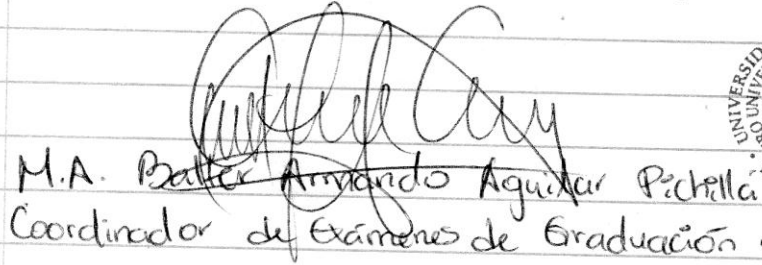 M.A. Balter Armando Aguilar Pichillá
Coordinador de Exámenes de Graduación
UNIVERSID